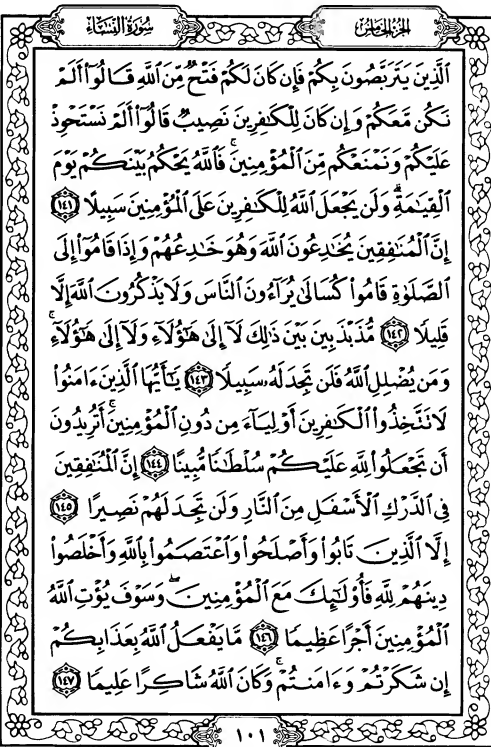 الجزء الخامس
سُورَةُ النِّسَاءِ
ٱلَّذِينَ يَتَرَبَّصُونَ بِكُمْ فَإِن كَانَ لَكُمْ فَتْحٌ مِّنَ ٱللَّهِ قَالُوٓا۟ أَلَمْ
نَكُن مَّعَكُمْ وَإِن كَانَ لِلْكَٰفِرِينَ نَصِيبٌ قَالُوٓا۟ أَلَمْ نَسْتَحْوِذْ
عَلَيْكُمْ وَنَمْنَعْكُم مِّنَ ٱلْمُؤْمِنِينَ ۚ فَٱللَّهُ يَحْكُمُ بَيْنَكُمْ يَوْمَ
ٱلْقِيَٰمَةِ ۗ وَلَن يَجْعَلَ ٱللَّهُ لِلْكَٰفِرِينَ عَلَى ٱلْمُؤْمِنِينَ سَبِيلًا ١٤١
إِنَّ ٱلْمُنَٰفِقِينَ يُخَٰدِعُونَ ٱللَّهَ وَهُوَ خَٰدِعُهُمْ وَإِذَا قَامُوٓا۟ إِلَى
ٱلصَّلَوٰةِ قَامُوا۟ كُسَالَىٰ يُرَآءُونَ ٱلنَّاسَ وَلَا يَذْكُرُونَ ٱللَّهَ إِلَّا
قَلِيلًا ١٤٢ مُّذَبْذَبِينَ بَيْنَ ذَٰلِكَ لَآ إِلَىٰ هَٰٓؤُلَآءِ وَلَآ إِلَىٰ هَٰٓؤُلَآءِ ۚ
وَمَن يُضْلِلِ ٱللَّهُ فَلَن تَجِدَ لَهُۥ سَبِيلًا ١٤٣ يَٰٓأَيُّهَا ٱلَّذِينَ ءَامَنُوا۟
لَا تَتَّخِذُوا۟ ٱلْكَٰفِرِينَ أَوْلِيَآءَ مِن دُونِ ٱلْمُؤْمِنِينَ ۚ أَتُرِيدُونَ
أَن تَجْعَلُوا۟ لِلَّهِ عَلَيْكُمْ سُلْطَٰنًا مُّبِينًا ١٤٤ إِنَّ ٱلْمُنَٰفِقِينَ
فِى ٱلدَّرْكِ ٱلْأَسْفَلِ مِنَ ٱلنَّارِ وَلَن تَجِدَ لَهُمْ نَصِيرًا ١٤٥
إِلَّا ٱلَّذِينَ تَابُوا۟ وَأَصْلَحُوا۟ وَٱعْتَصَمُوا۟ بِٱللَّهِ وَأَخْلَصُوا۟
دِينَهُمْ لِلَّهِ فَأُو۟لَٰٓئِكَ مَعَ ٱلْمُؤْمِنِينَ ۖ وَسَوْفَ يُؤْتِ ٱللَّهُ
ٱلْمُؤْمِنِينَ أَجْرًا عَظِيمًا ١٤٦ مَّا يَفْعَلُ ٱللَّهُ بِعَذَابِكُمْ
إِن شَكَرْتُمْ وَءَامَنتُمْ ۚ وَكَانَ ٱللَّهُ شَاكِرًا عَلِيمًا ١٤٧
١٠١